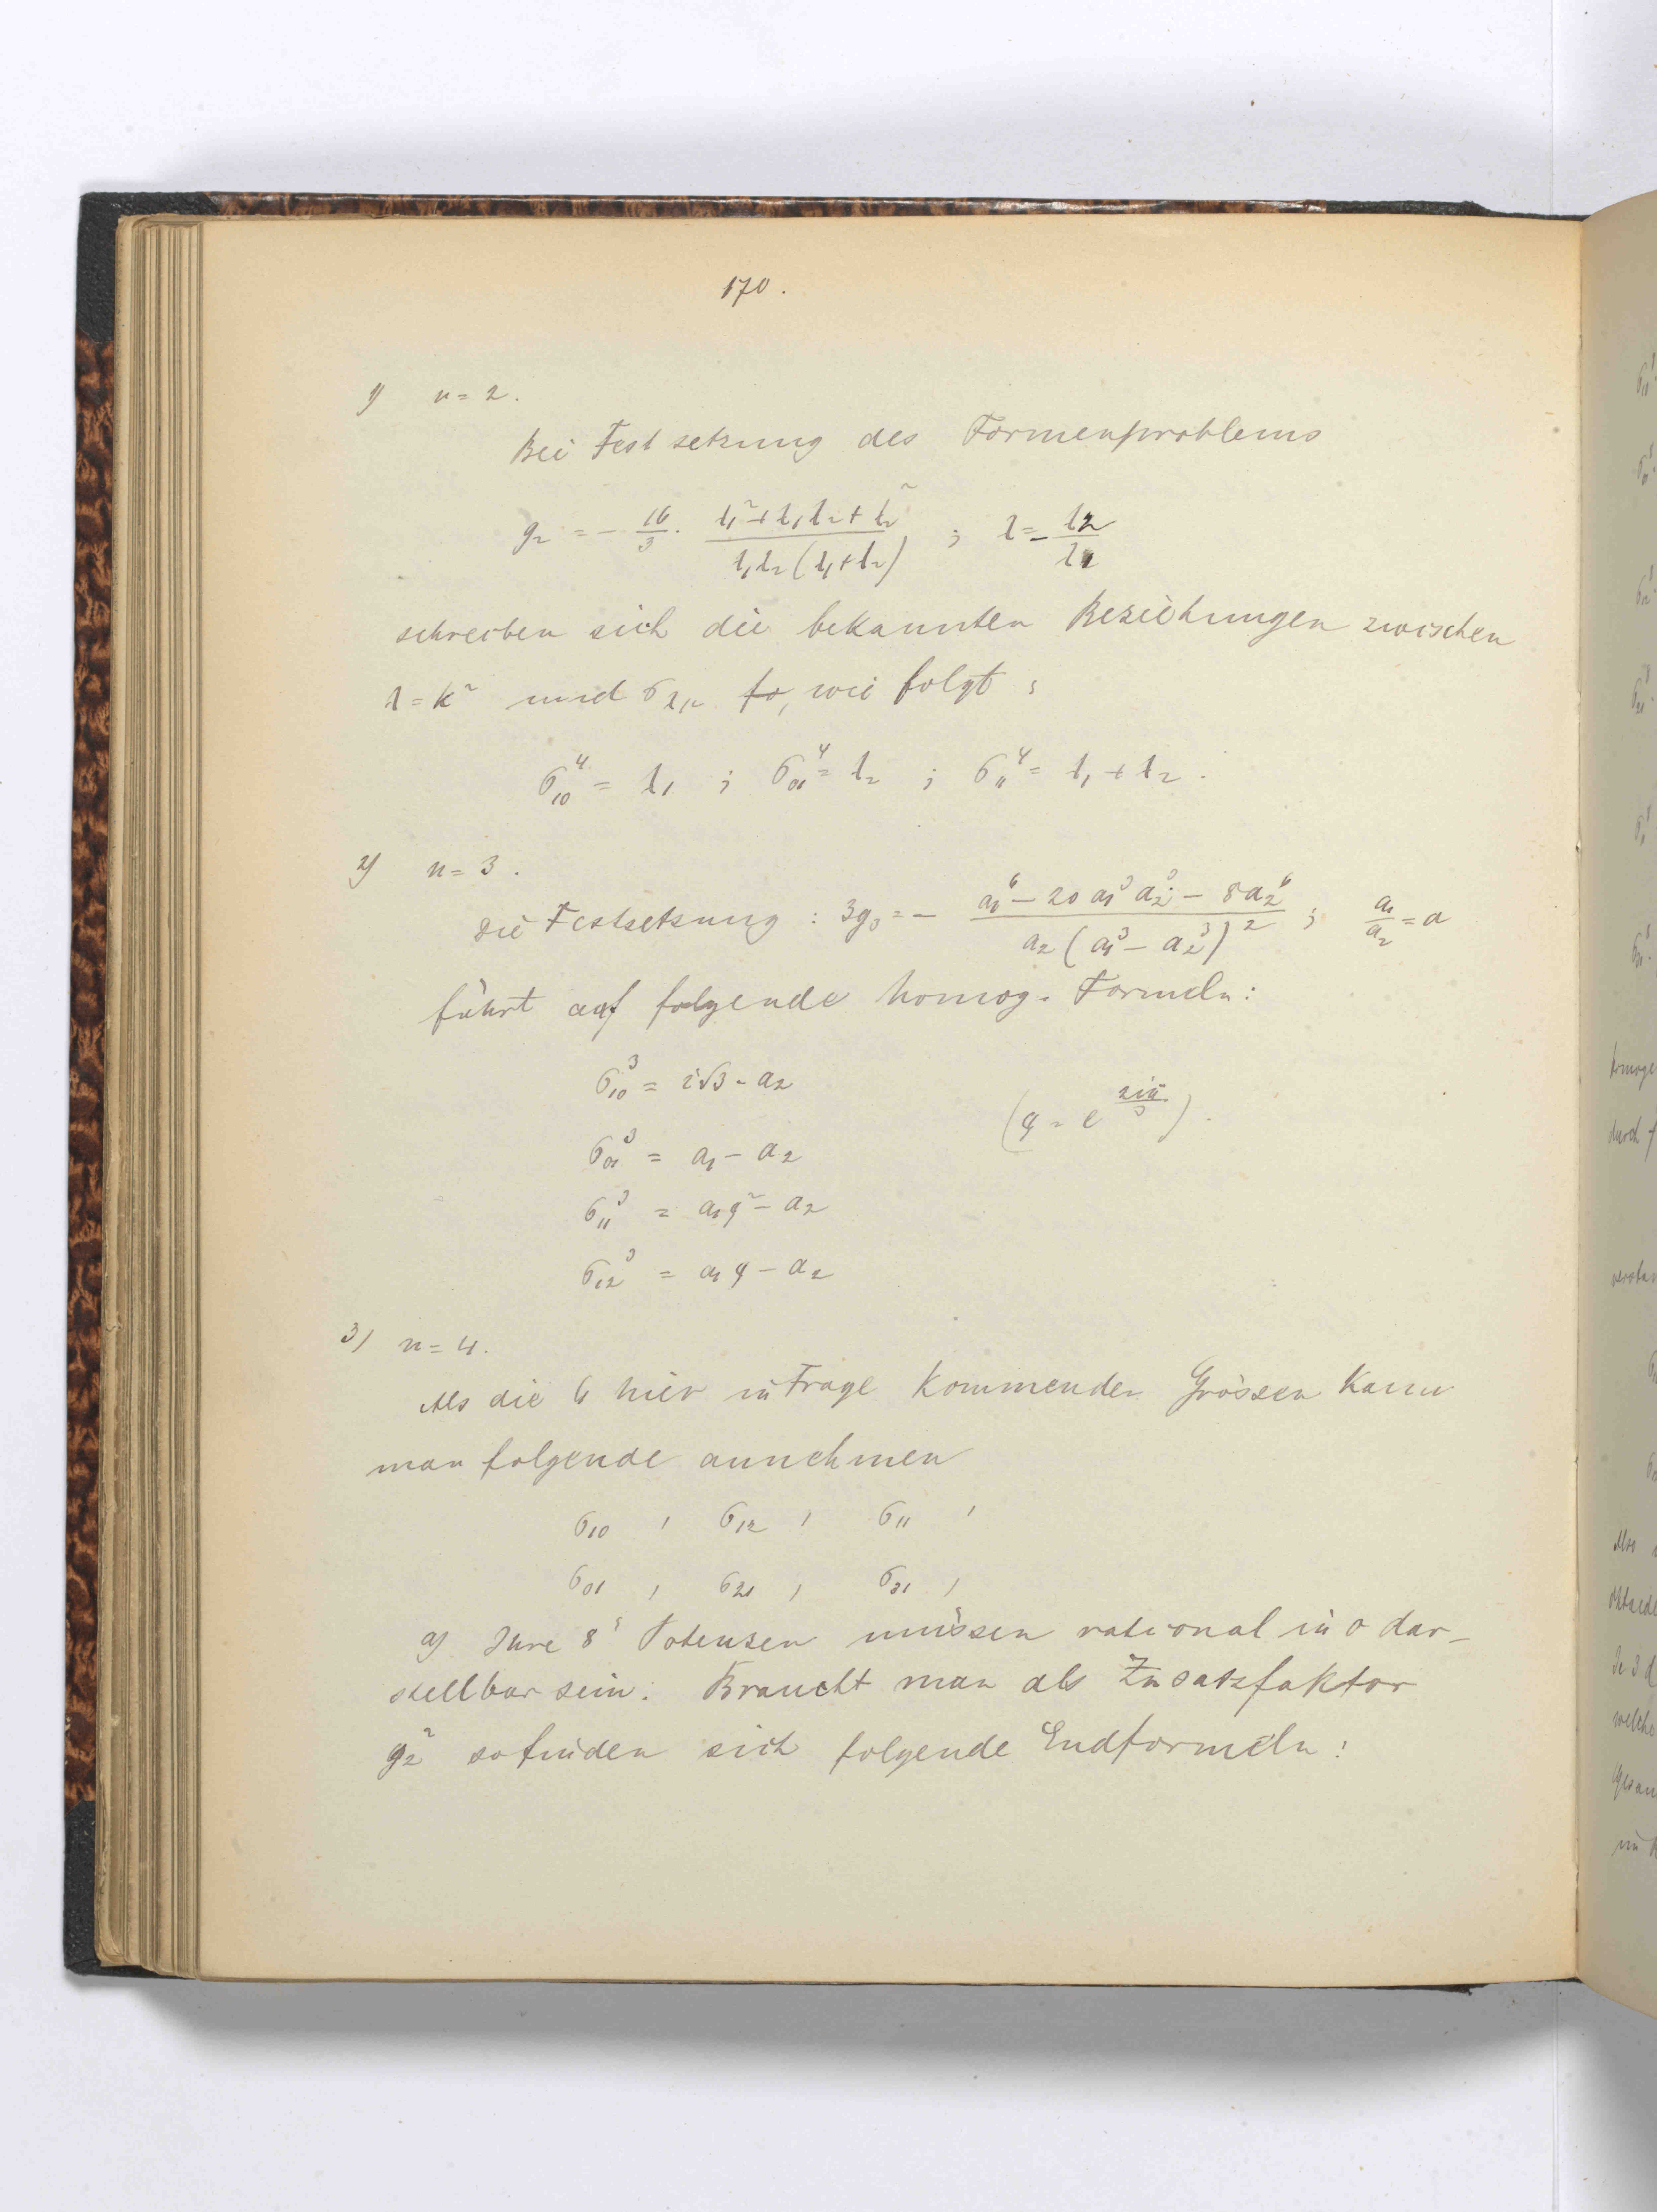 170.
1) n = 2.
Bei Festsetzung des Formenproblems
g₂ = − 16/3 · (l₁² + l₁l₂ + l₂²) / (l₁l₂(l₁+l₂)) ; l = − l₂/l₁
schreiben sich die bekannten Beziehungen zwischen
λ = k² und σλμ so, wie folgt :
σ₁₀⁴ = l₁ ; σ₀₁⁴ = l₂ ; σ₁₁⁴ = l₁ + l₂ .
2) n = 3 .
Die Festsetzung : 3g₃ = − (a₁⁶ − 20 a₁³ a₂³ − 8a₂⁶) / (a₂(a₁³ − a₂³)²) ; a₁/a₂ = a
führt auf folgende homog. Formeln:
σ₁₀³ = i√3 · a₂
(ϱ = e^(2iπ/3)) .
σ₀₁³ = a₁ − a₂
σ₁₁³ = a₁ϱ² − a₂
σ₁₂³ = a₁ϱ − a₂
3) n = 4.
Als die 6 hier in Frage kommenden Grössen kann
man folgende annehmen
σ₁₀ , σ₁₂ , σ₁₁ ,
σ₀₁ , σ₂₁ , σ₃₁ ,
a) Ihre 8ᵗ Potenzen müssen rational in o dar-
stellbar sein. Braucht man als Zusatzfaktor
g₂² so finden sich folgende Endformeln :